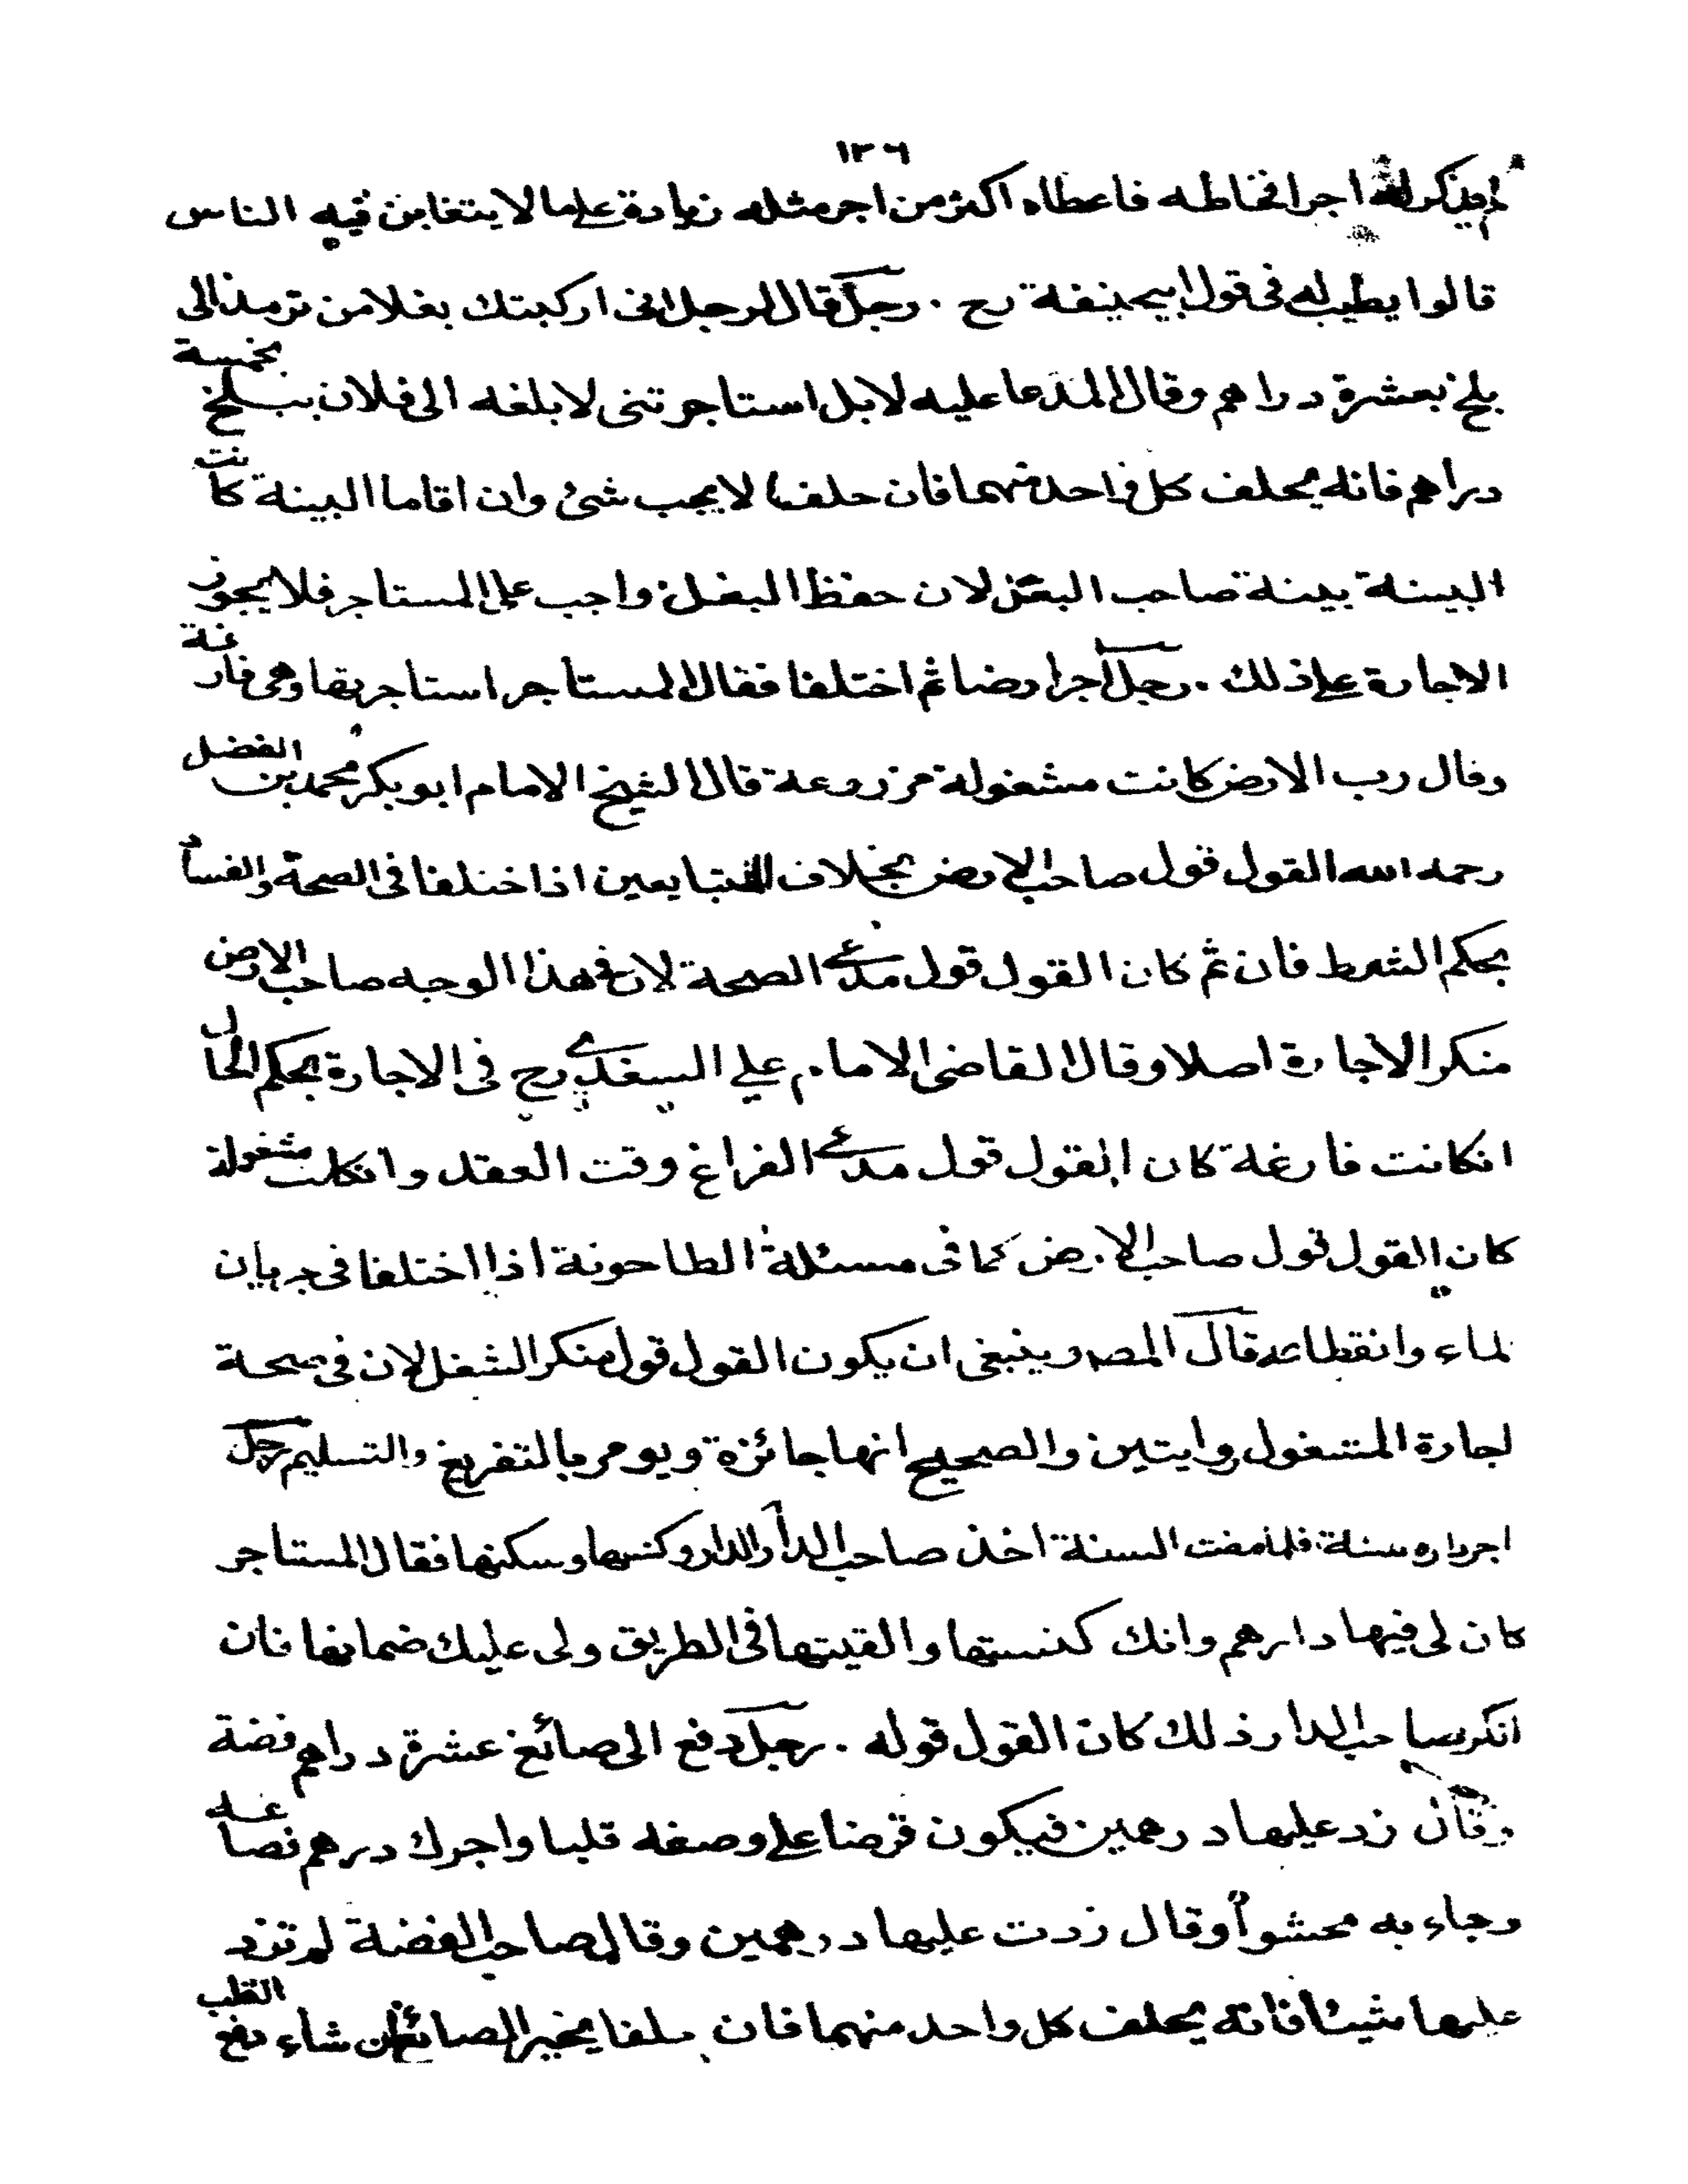 ١٣٦
لم يذكر له اجرا فخاطه فاعطاه اكثر من اجر مثله زيادة على ما لا يتغابن فيه الناس
قالوا يطيب له فى قول ابيحنيفة رح . رجل قال لرجل انى اركبتك بغلا من ترمذ الى
بلخ بعشرة دراهم وقال المدعا عليه لا بل استاجرتنى لابلغه الى فلان ببلخ بخمسة
دراهم فانه يحلف كل واحد منهما فان حلفا لا يجب شئ وان اقاما البينة كانت
البينة بينة صاحب البغل لان حفظ البغل واجب على المستاجر فلا يجوز
الاجارة على ذلك . رجل اجر ارضا ثم اختلفا فقال المستاجر استاجرتها وهى فارغة
وقال رب الارض كانت مشغولة مزروعة قال الشيخ الامام ابو بكر محمد بن الفضل
رحمه الله القول قول صاحب الارض بخلاف المتبايعين اذا ختلفا فى الصحة والفساد
بحكم الشرط فان ثم كان القول قول مدعى الصحة لان فى هذا الوجه صاحب الارض
منكر الاجارة اصلا وقال القاضى الامام على السغدى رح فى الاجارة يحكم الحال
انكانت فارغة كان القول قول مدعى الفراغ وقت العقد وانكانت مشغولة
كان القول قول صاحب الارض كما فى مسئلة الطاحونة اذا اختلفا فى جريان
لماء وانقطاعه قال المصـ وينبغى ان يكون القول قول منكر الشغل لان فى صحة
اجارة المشغول روايتين والصحيح انها جائزة ويومر بالتفريغ والتسليم رجل
اجر داره سنة فلما مضت السنة اخذ صاحب الدار الدار وكنسها وسكنها فقال المستاجر
كان لى فيها دارهم وانك كنستها والقيتها فى الطريق ولى عليك ضمانها فان
انكر صاحب الدار ذلك كان القول قوله . رجل دفع الى صائغ عشرة دراهم فضة
وقال زد عليها درهمين فيكون قرضا على وصغه قلبا واجرك درهم فصاغه
وجاء به محشوا وقال زدت عليها درهمين وقال صاحب الفضة لم تزد
عليها شيئا فانه يحلف كل واحد منهما فان حلفا يخير الصائغ ان شاء دفع القلب